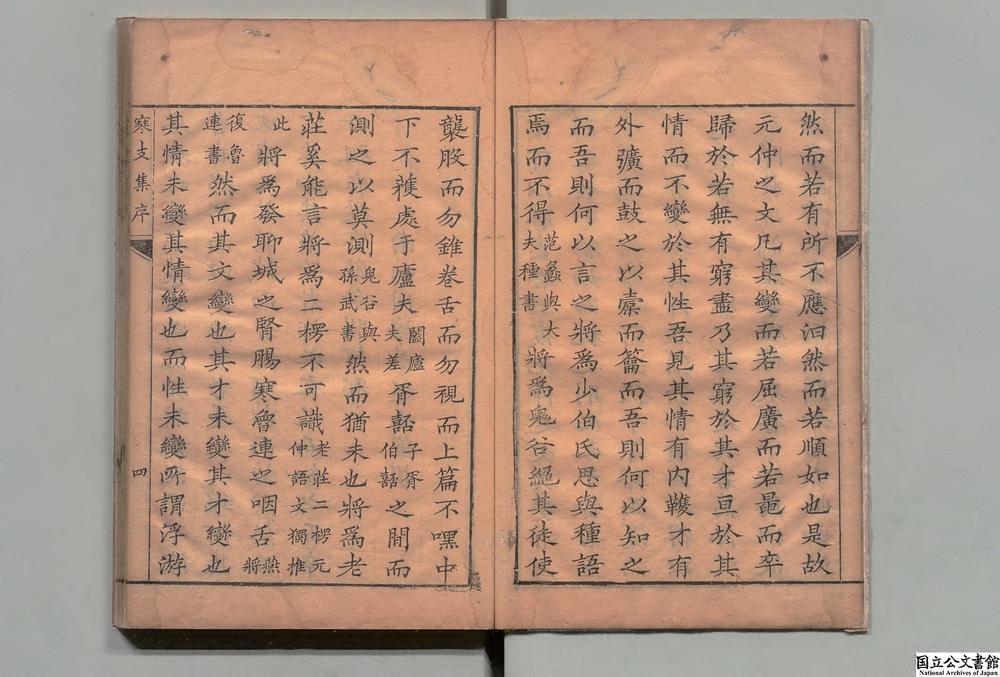 然而若有所不應汩然而若順如也是故
元仲之文凡其變而若屈廣而若黽而卒
歸於若無有窮盡乃其窮於其才亘於其
情而不變於其性吾見其情有内鞿才有
外彉而鼓之以橐而籥而吾則何以知之
而吾則何以言之將爲少伯氏思與種語
焉而不得范蠡與大夫種書將爲鬼谷繩其徒使
襲股而勿錐卷舌而勿視而上篇不嘿中
下不蘀處于廬夫闔廬夫差胥嚭子胥伯嚭之閒而
測之以莫測鬼谷與孫武書然而猶未也將爲老
莊奚能言將爲二楞不可識老莊二楞元仲語文獨推
此將爲發聊城之腎腸寒魯連之咽舌燕將
復魯連書然而其文變也其才未變其才變也
其情未變其情變也而性未變所謂浮游
寒支集序
四
国立公文書館
National Archives of Japan